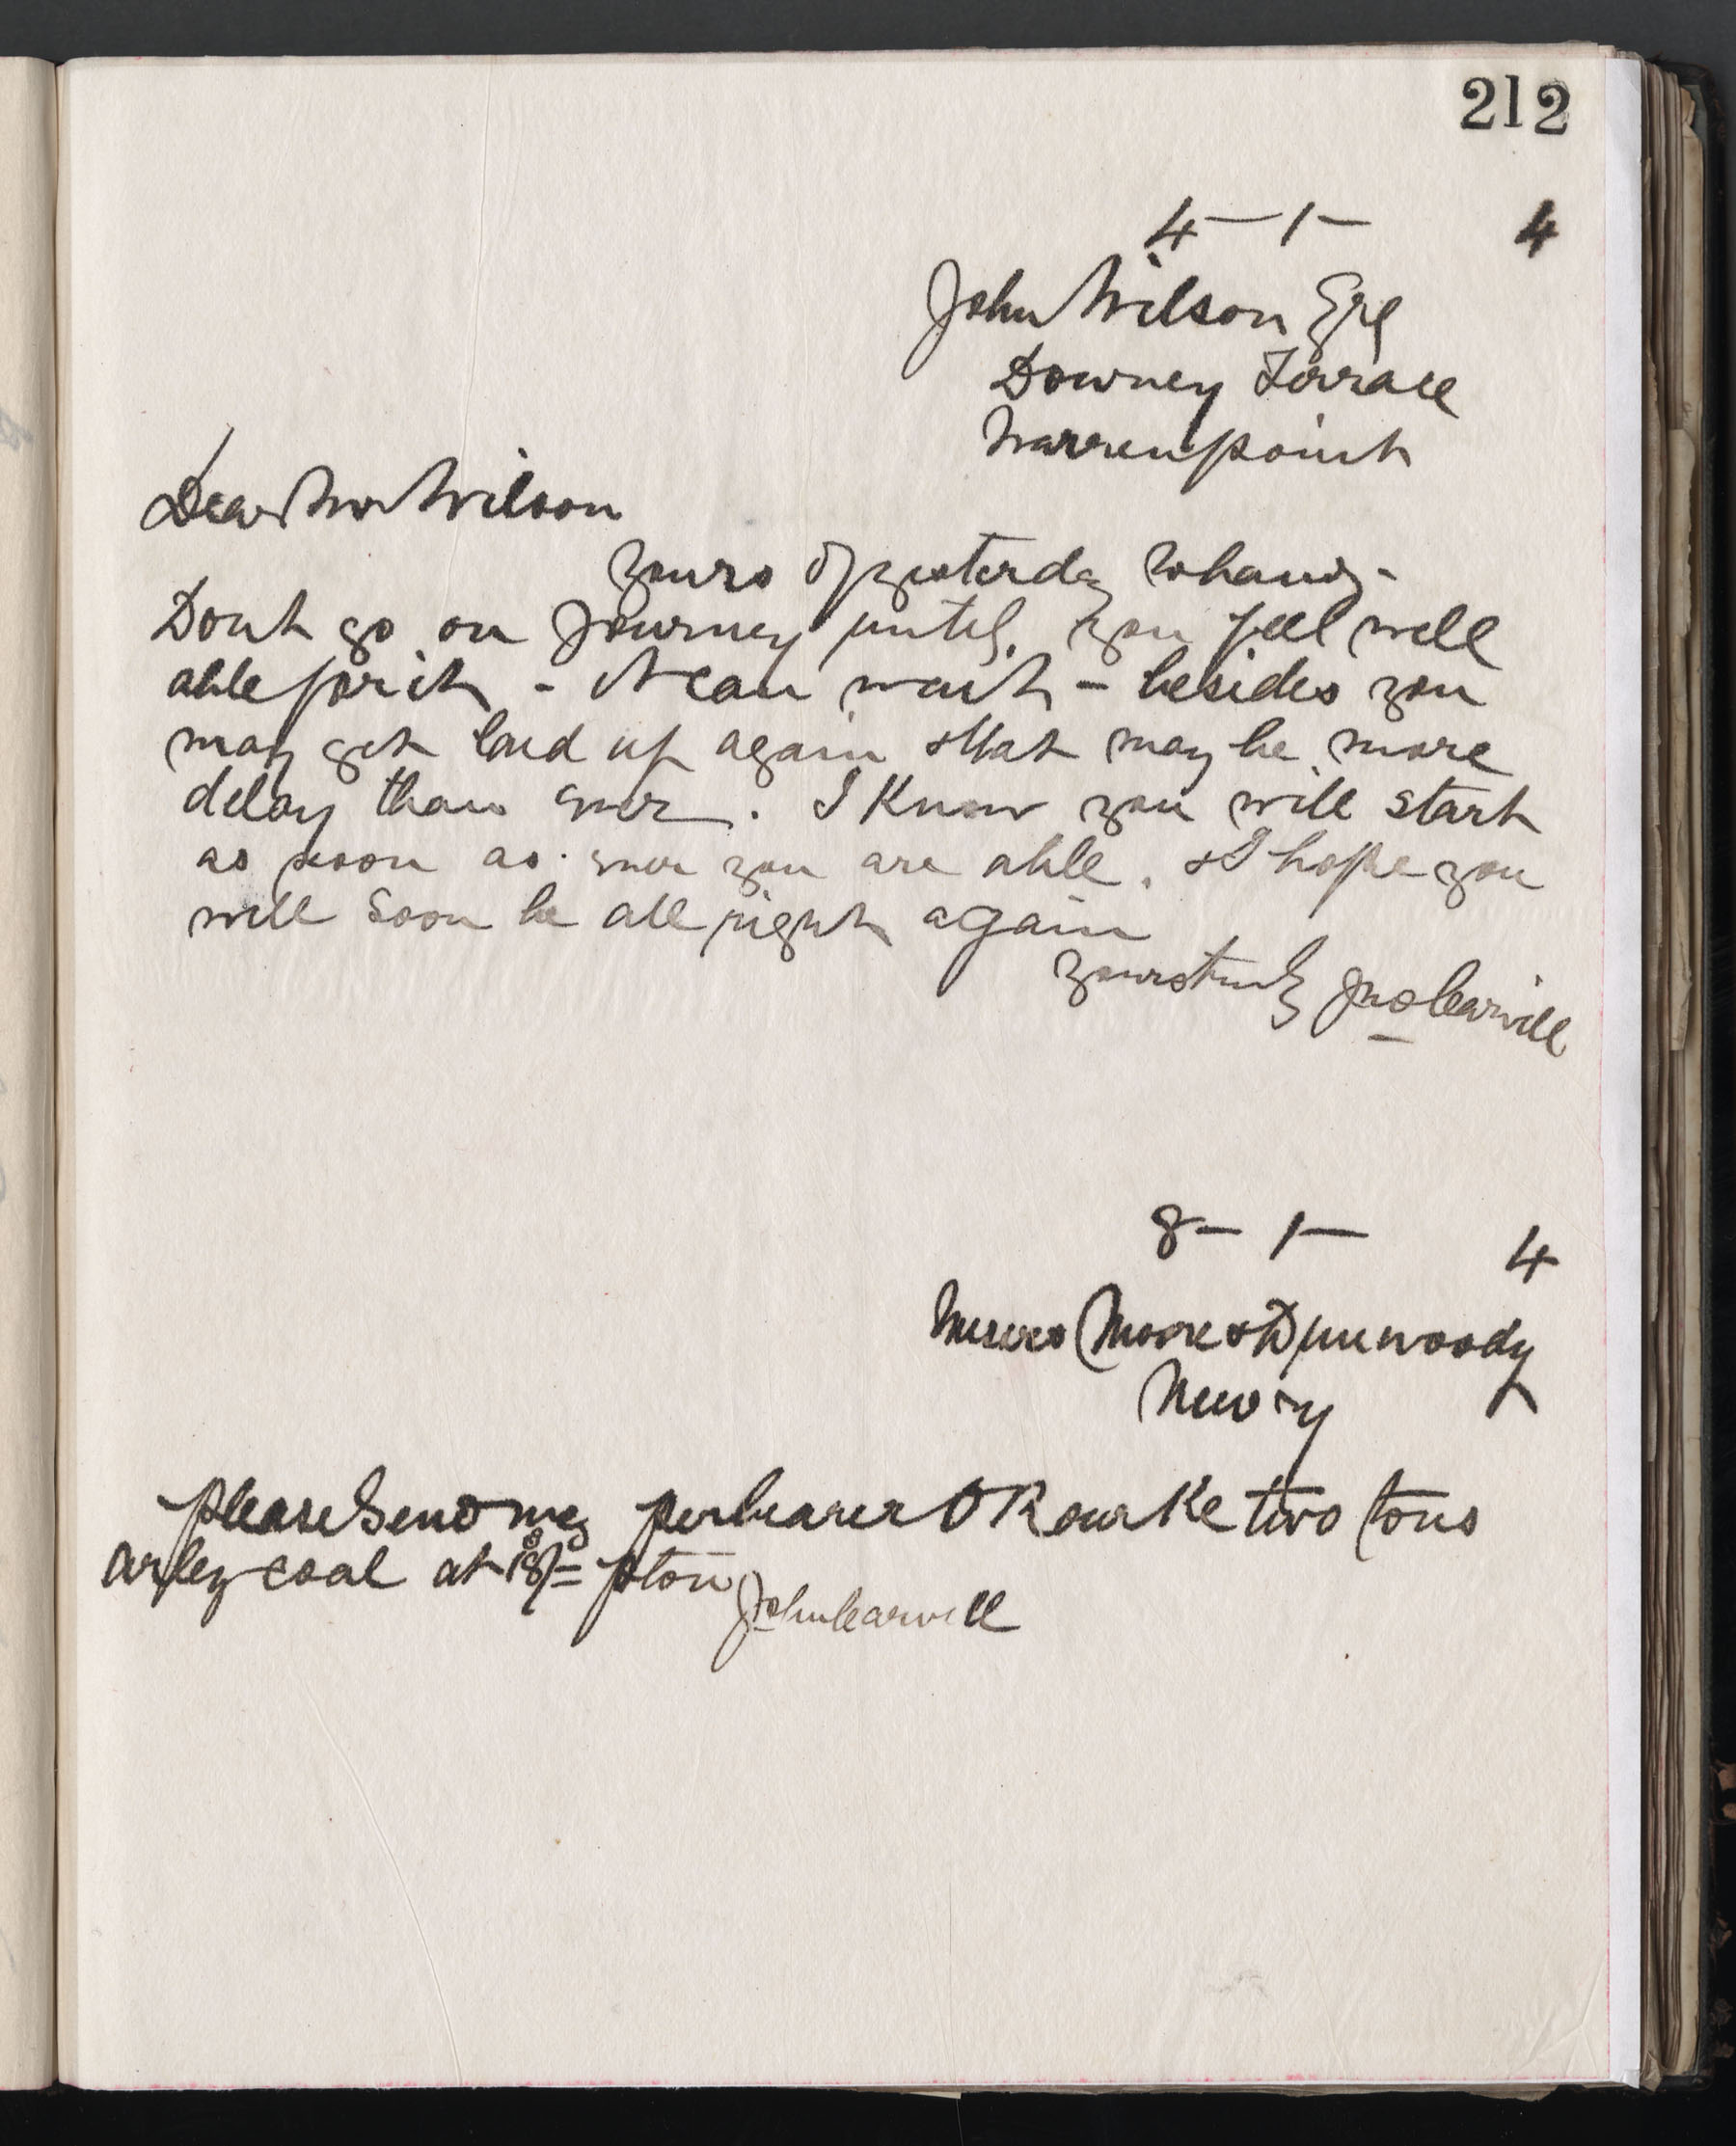 212
4 - 1 - 4
John Wilson Esq
Downey Terrace
Warrenpoint
Dear Mr Wilson
Yours of yesterday to hand -
Dont go on Journey until you feel well
able for it - It can wait - besides you
may get laid up again & that may be more
delay than ever. I Know you will start
as soon as ever you are able. & I hope you
will soon be all right again
yours truly Jno Carvill
8 - 1 - 4
Messrs Moore & Dunwoody
Newry
please Send me per bearer O Rourke two tons
arley coal at 18/= p ton
John Carvill